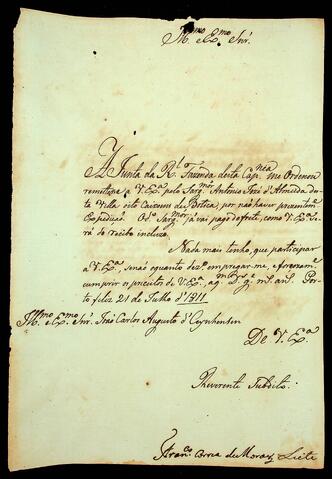 Ill.mo Ex.mo Snr.
A Junta da R.l Fazenda desta Cap.nea me Ordenou
remetesse a V. Ex.a pelo Sarg.mor Antonio José d'Almeida desta
Villa oito Caixoens de Botica, por não haver prezentem.e
Expedição. O d.o Sarg.mor já vai pago do frete, como V. Ex.a ve-
rá do recibo incluzo.
Nada mais tenho, que participar
a V. Ex.a, senão o quanto dez.o empregar-me,
cumprir os preceitos de V. Ex.a, a q.m D.s g.e m.s an.s Por-
to feliz 21 de Julho d'1811.
Ill.mo Ex.mo Snr. João Carlos Augusto d'Oeynhensen
De V. Ex.a
Reverente Subdito.
Fran.co Correa de Moraes Leite